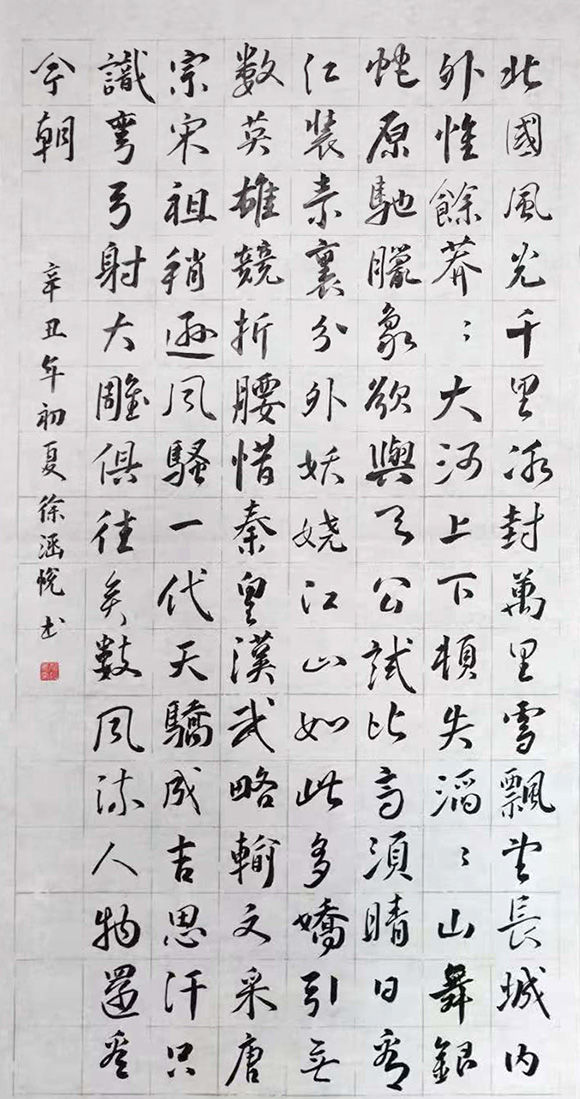 北國風光千里冰封萬里雪飄望長城内
外惟餘莽〻大河上下頓失滔〻山舞銀
蛇原馳臘象欲與天公試比高須晴日看
红裝素裹分外妖娆江山如此多嬌引无
數英雄競折腰惜秦皇漢武略輸文采唐
宗宋祖稍遜风騷一代天驕成吉思汗只
識彎弓射大雕俱往矣數风流人物還看
今朝
辛丑年初夏徐涵悦书